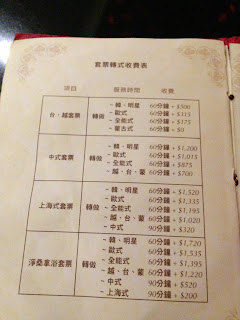 套票轉式收費表
項目 服務時間 收費
台、越套票 轉做 ~ 韓、明星 60分鐘 + $500
~ 歐式 60分鐘 + $315
~ 全能式 60分鐘 + $175
~ 蒙古式 60分鐘 + $0
中式套票 轉做 ~ 韓、明星 60分鐘 + $1,200
~ 歐式 60分鐘 + $1,015
~ 全能式 60分鐘 + $875
~ 越、台、蒙 60分鐘 + $700
上海式套票 轉做 ~ 韓、明星 60分鐘 + $1,520
~ 歐式 60分鐘 + $1,335
~ 全能式 60分鐘 + $1,195
~ 越、台、蒙 60分鐘 + $1,020
~ 中式 90分鐘 + $320
淨桑拿浴套票 轉做 ~ 韓、明星 60分鐘 + $1,720
~ 歐式 60分鐘 + $1,535
~ 全能式 60分鐘 + $1,395
~ 越、台、蒙 60分鐘 + $1,220
~ 中式 90分鐘 + $520
~ 上海式 90分鐘 + $200